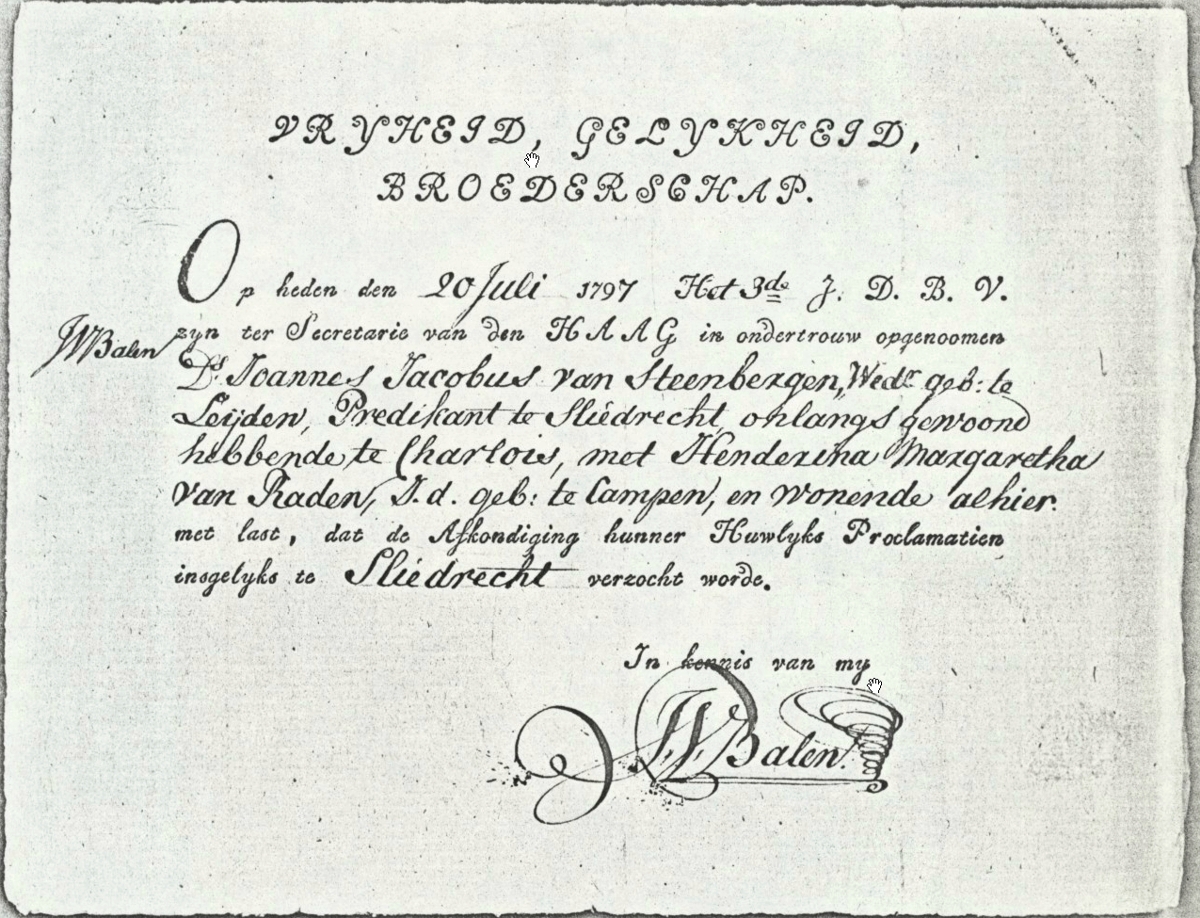 VRYHEID, GELYKHEID,
BROEDERSCHAP.
Op heden den 20 Juli 1797 Het 3de J. D. B. V.
zyn ter Secretarie van den HAAG in ondertrouw opgenoomen
JWBalen
Ds. Joannes Jacobus van Steenbergen, Wedr. geb: te
Leijden, Predikant te Sliedrecht, onlangs gewoond
hebbende te Charlois, met Henderina Margaretha
van Raden, J.d. geb: te Campen, en wonende alhier.
met last, dat de Afkondiging hunner Huwlyks Proclamatien
insgelyks te Sliedrecht verzocht worde.
In kennis van my
JWBalen.